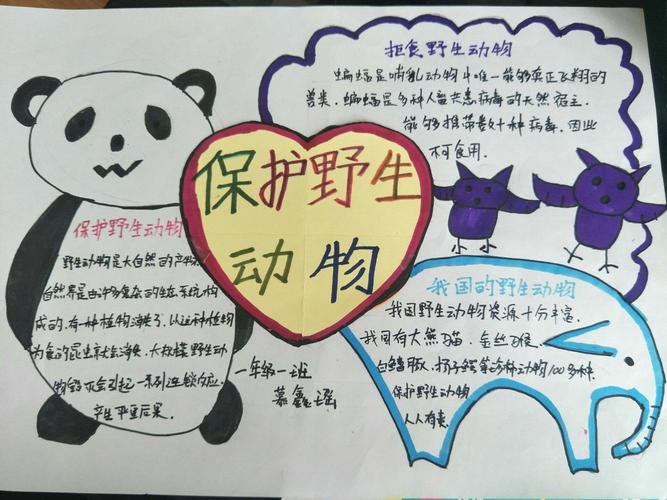 保护野生
动物
拒食野生动物
蝙蝠是哺乳动物中唯一能够真正飞翔的
兽类，蝙蝠是多种人畜共患病毒的天然宿主.
能够携带数十种病毒，因此
不可食用.
保护野生动物
野生动物是大自然的产物.
自然界是由许多复杂的生态系统构
成的，有一种植物消失了，以这种植物
为食的昆虫就会消失，大规模野生动
物毁灭会引起一系列连锁反应，
产生严重后果.
一年第一班
慕鑫瑶
我国的野生动物
我国野生动物资源十分丰富.
我国有大熊猫、金丝猴、
白鳍豚、扬子鳄等珍种动物100多种.
保护野生动物
人人有责.